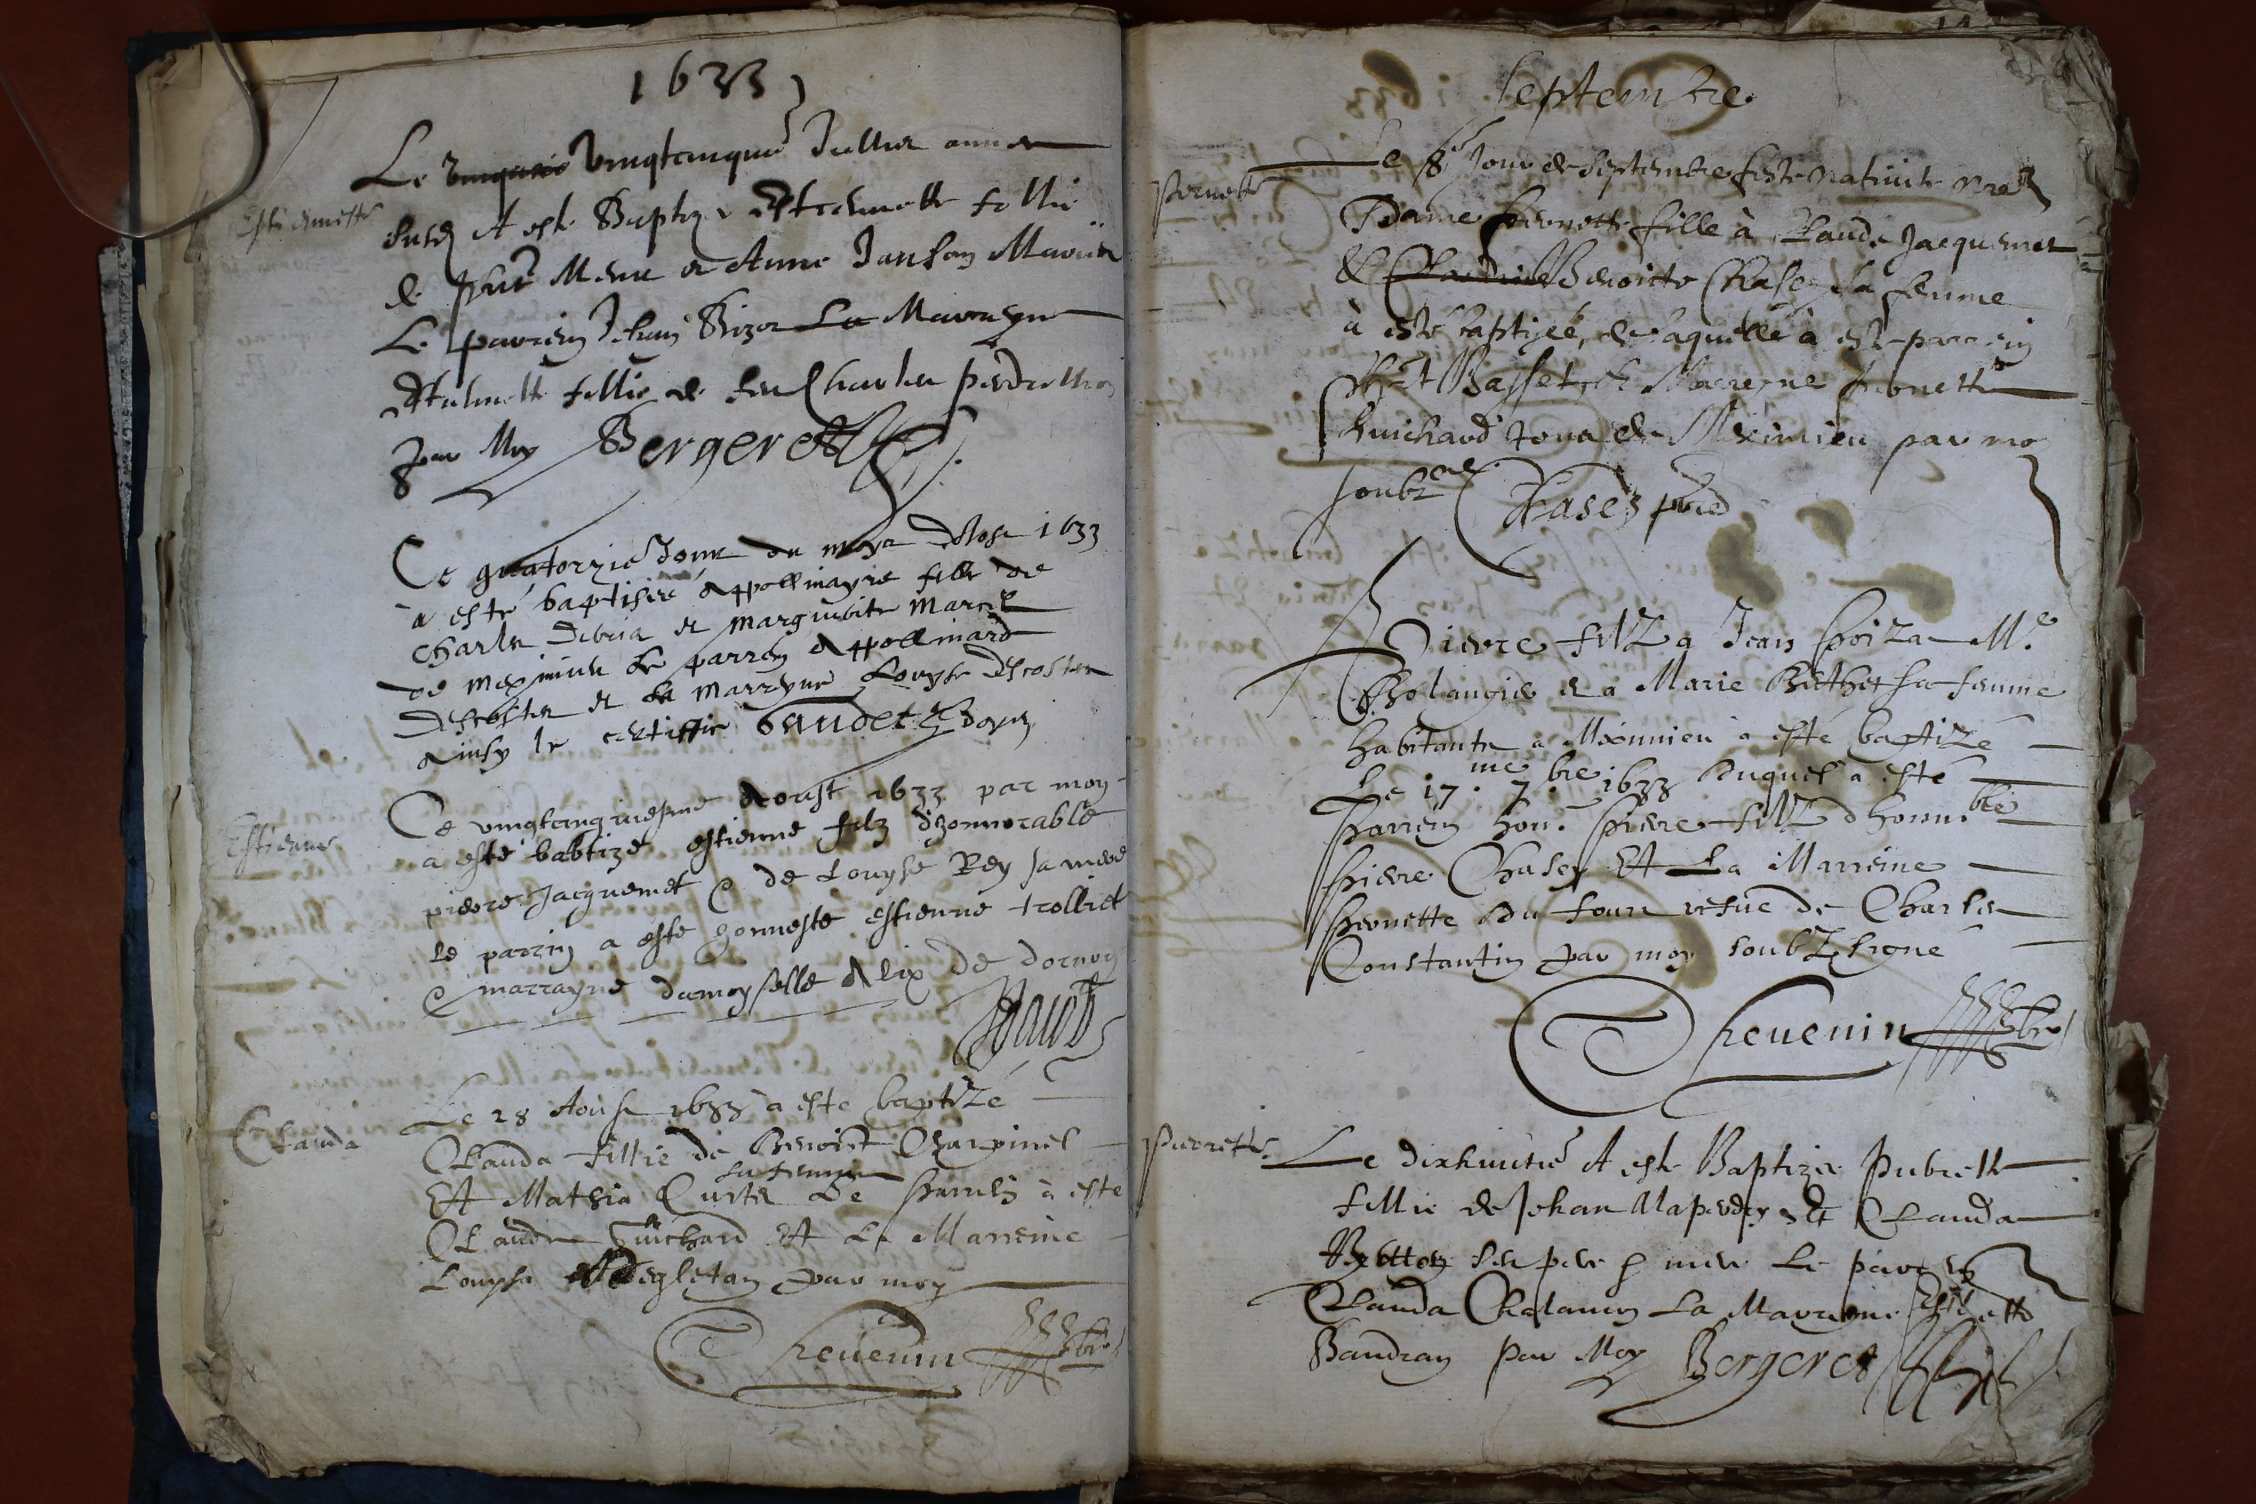 1633
Le vingtcinque Juillet annee
susd A este Baptizé Estiennette fillie
de Menu et Anne Janson Mariés
Le parrein Jehan Bizet La Marreyne
Estiennette fillie de feu Charles
par Moy Bergeret
Estiennette
Ce quatorzie Jour du moys 1633
à esté baptisée Appollinayre fille de
Charle Debria et Margueite Marcel
de meximieu Le parrey Appollinard
Descostes et La Marreyne Louyse descostes
Ainsy le certiffie Baudet doyen
Estienne
Ce vingtcinquiesme Aoust 1633 par moy
a esté babtizé estienne filz d'honnorable
pierre Jacquemet & de Louyse Rey sa mere
le parrin a esté honneste estienne trolliet
& marrayne damoyselle Alix de dornoy
Jacob
Clauda
Le 28 Aoust 1633 à este baptizé
Clauda fillie de Benoict Charpinel
Et Mathia Curtet sa femme Le Parrein à este
Claude Guichard Et La Marreine
Louyse par moy
Theuenin pbre
Septembre
Pernette
Le 8e Jour de Septembre feste Natiuite nre
Dame Pernette fille à Claude Jacquemet
& Benoitte Chasey sa femme
à esté baptizeé, de laquelle à est parrein
Basset et Marreyne Pernette
Guichard tous de Meximieu par moy
soubzne
Chasey
Pierre filz a Jean Me
Bolangie et a Marie Bethet sa femme
habitante a Meximieu a esté baptizé
Le 17me 7bre 1633 duquel a esté
parrein hon. Pierre filz dhonn.ble
Pierre Chasey Et La Marreine
Pernette du four vefue de Charles
Constantin par moy soubz signé
Theuenin pbre
Pierrette
Le dixhuitie A este Baptizée Pierrette
fillie de Jehan et Clauda
ses pere & mere Le parrein
Claude Chalamon La Marreyne Pierrette
Baudran par Moy Bergeret